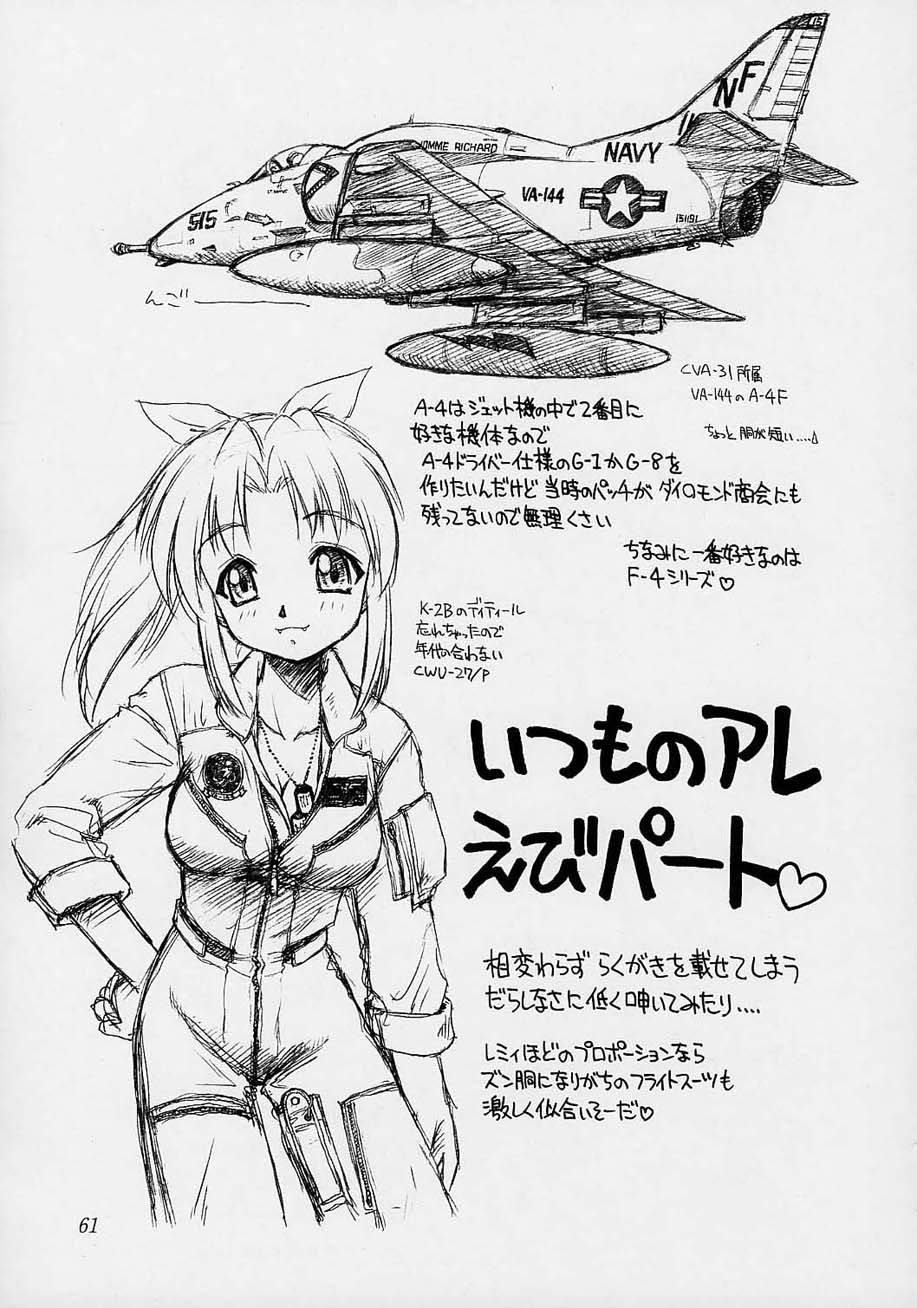 15
NF
11
HOMME RICHARD
NAVY
VA-144
515
151191
んごーーー
CVA-31所属
VA-144のA-4F
ちょっと胴が短い....
A-4はジェット機の中で2番目に
好きな機体なので
A-4ドライバー仕様のG-1かG-8を
作りたいんだけど 当時のパッチが ダイロモンド商会にも
残ってないので無理くさい
ちなみに一番好きなのは
F-4シリーズ♡
K-2Bのディティール
忘れちゃったので
年代の合わない
CWU-27/P
いつものアレ
えびパート♡
相変わらず らくがきを載せてしまう
だらしなさに低く呻いてみたり....
レミィほどのプロポーションなら
ズン胴になりがちのフライトスーツも
激しく似合いそーだ♡
61